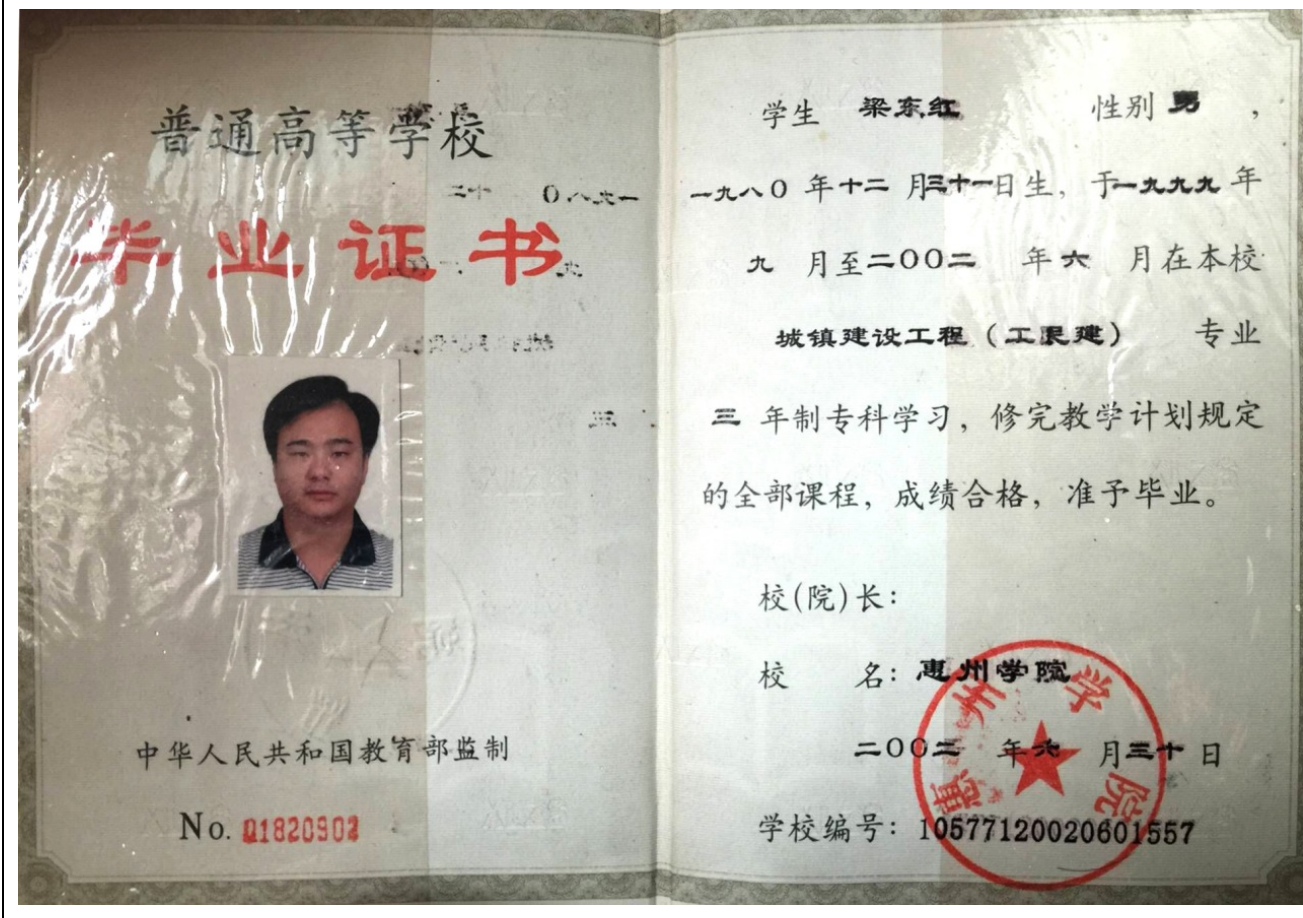 普通高等学校
毕业证书
中华人民共和国教育部监制
No. Q1820902
学生 梁东红 性别 男，
一九八〇 年十二 月三十一日生，于一九九九 年
九 月至二〇〇二 年六 月在本校
城镇建设工程（工民建） 专业
三 年制专科学习，修完教学计划规定
的全部课程，成绩合格，准予毕业。
校(院)长：
校 名：惠州学院
二〇〇二 年六 月三十日
学校编号：10577120020601557
惠州学院